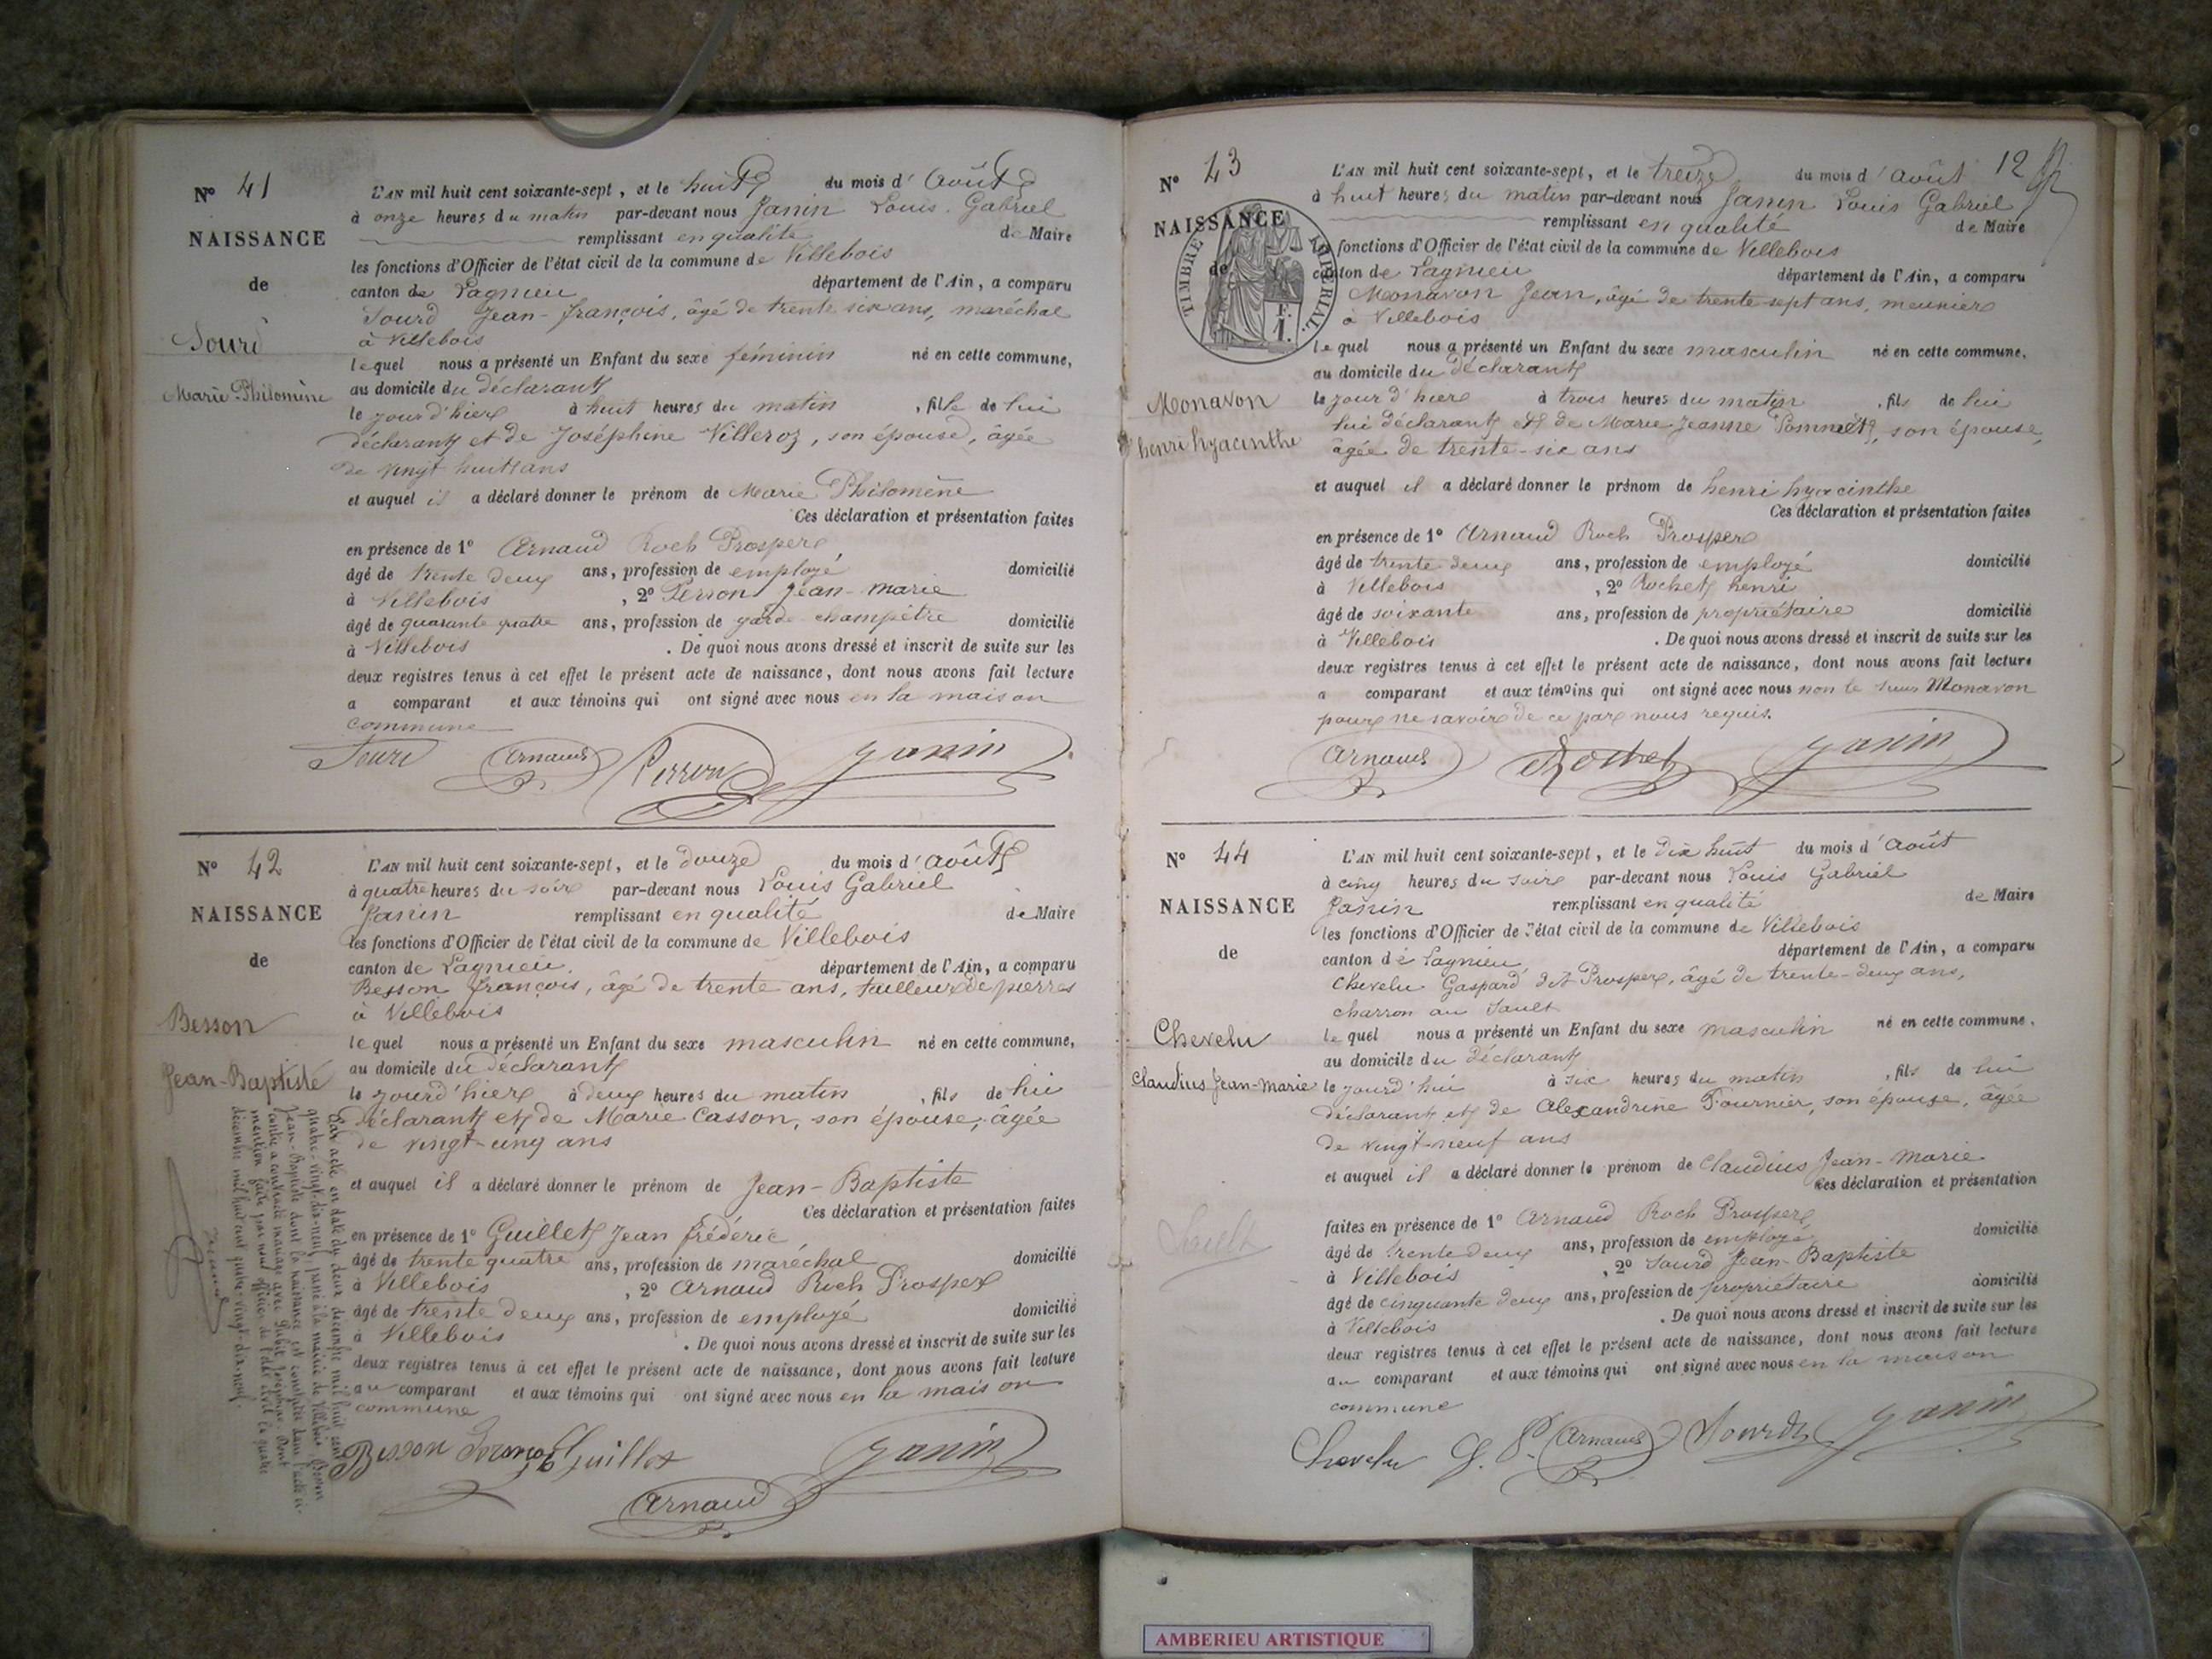 N° 41
NAISSANCE
de
Sourd
Marie-Philomène
L'AN mil huit cent soixante-sept, et le huit du mois d'Août
à onze heures du matin par-devant nous Janin Louis Gabriel
remplissant en qualité de Maire
les fonctions d'Officier de l'état civil de la commune de Villebois
canton de Lagnieu département de l'Ain, a comparu
Sourd Jean-François, âgé de trente six ans, maréchal
à Villebois
lequel nous a présenté un Enfant du sexe féminin né en cette commune,
au domicile du déclarant
le jour d'hier à huit heures du matin, fille de lui
déclarant et de Joséphine Villeroz, son épouse, âgée
de vingt huit ans
et auquel il a déclaré donner le prénom de Marie Philomène
Ces déclaration et présentation faites
en présence de 1° Arnaud Roch Prosper
âgé de trente deux ans, profession de employé domicilié
à Villebois, 2° Perron Jean-marie
âgé de quarante quatre ans, profession de garde-champêtre domicilié
à Villebois. De quoi nous avons dressé et inscrit de suite sur les
deux registres tenus à cet effet le présent acte de naissance, dont nous avons fait lecture
a comparant et aux témoins qui ont signé avec nous en la maison
commune
Sourd Arnaud Perron Janin
N° 42
NAISSANCE
de
Besson
Jean-Baptiste
L'AN mil huit cent soixante-sept, et le douze du mois d'Août
à quatre heures du soir par-devant nous Louis Gabriel
Janin remplissant en qualité de Maire
les fonctions d'Officier de l'état civil de la commune de Villebois
canton de Lagnieu. département de l'Ain, a comparu
Besson François, âgé de trente ans, tailleur de pierres
à Villebois
lequel nous a présenté un Enfant du sexe masculin né en cette commune,
au domicile du déclarant
le jourd'hier à deux heures du matin, fils de lui
déclarant et de Marie Casson, son épouse, âgée
de vingt-cinq ans
et auquel il a déclaré donner le prénom de Jean-Baptiste
Ces déclaration et présentation faites
en présence de 1° Guillet Jean Frédéric
âgé de trente quatre ans, profession de maréchal domicilié
à Villebois, 2° Arnaud Roch Prosper
âgé de trente deux ans, profession de employé domicilié
à Villebois. De quoi nous avons dressé et inscrit de suite sur les
deux registres tenus à cet effet le présent acte de naissance, dont nous avons fait lecture
au comparant et aux témoins qui ont signé avec nous en la maison
commune
Besson François Guillet Janin
Arnaud
Par acte en date du deux décembre mil huit cent
quatre-vingt-dix-neuf, passé à la mairie de Villebois, Besson
Jean-Baptiste dont la naissance est constatée dans l'acte ci-
contre a contracté mariage avec Joséphine. Dont
mention faite par nous officier de l'état civil le quatre
décembre mil huit cent quatre-vingt-dix-neuf.
N° 43
NAISSANCE
de
TIMBRE IMPERIAL
F.
1.
Monavon
henri hyacinthe
12
L'AN mil huit cent soixante-sept, et le treize du mois d'août
à huit heures du matin par-devant nous Janin Louis Gabriel
remplissant en qualité de Maire
fonctions d'Officier de l'état civil de la commune de Villebois
canton de Lagnieu département de l'Ain, a comparu
Monavon Jean, âgé de trente-sept ans, meunier
à Villebois
lequel nous a présenté un Enfant du sexe masculin né en cette commune,
au domicile du déclarant
le jour d'hier à trois heures du matin, fils de lui
lui déclarant et de Marie Jeanne Pommet, son épouse,
âgée de trente-six ans
et auquel il a déclaré donner le prénom de henri hyacinthe
Ces déclaration et présentation faites
en présence de 1° Arnaud Roch Prosper
âgé de trente-deux ans, profession de employé domicilié
à Villebois, 2° Rochet henri
âgé de soixante ans, profession de propriétaire domicilié
à Villebois. De quoi nous avons dressé et inscrit de suite sur les
deux registres tenus à cet effet le présent acte de naissance, dont nous avons fait lecture
a comparant et aux témoins qui ont signé avec nous non le sieur Monavon
pour ne savoir de ce par nous requis.
Arnaud Rochet Janin
N° 44
NAISSANCE
de
Chevelu
Claudius Jean-Marie
Sault
L'AN mil huit cent soixante-sept, et le dix huit du mois d'août
à cinq heures du soir par-devant nous Louis Gabriel
Janin remplissant en qualité de Maire
les fonctions d'Officier de l'état civil de la commune de Villebois
canton de Lagnieu département de l'Ain, a comparu
Chevelu Gaspard dit Prosper, âgé de trente-deux ans,
charron au Sault
lequel nous a présenté un Enfant du sexe masculin né en cette commune,
au domicile du déclarant
le jourd'hui à six heures du matin, fils de lui
déclarant et de Alexandrine Fournier, son épouse, âgée
de vingt-neuf ans
et auquel il a déclaré donner le prénom de Claudius Jean-Marie
Ces déclaration et présentation
faites en présence de 1° Arnaud Roch Prosper
âgé de trente deux ans, profession de employé domicilié
à Villebois, 2° Sourd Jean-Baptiste
âgé de cinquante deux ans, profession de propriétaire domicilié
à Villebois. De quoi nous avons dressé et inscrit de suite sur les
deux registres tenus à cet effet le présent acte de naissance, dont nous avons fait lecture
au comparant et aux témoins qui ont signé avec nous en la maison
commune
Chevelu G. P. Arnaud Sourd Janin
AMBERIEU ARTISTIQUE